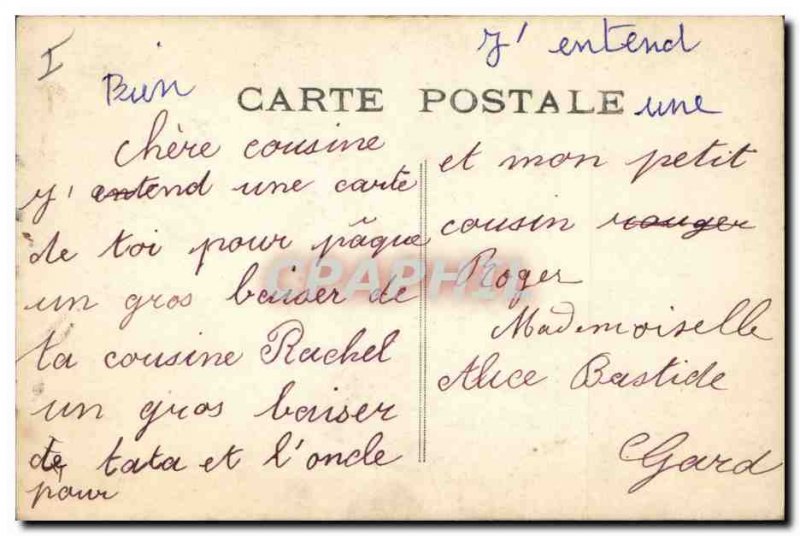 I
J' entend
Bien
CARTE POSTALE
une
Chère cousine
J' entend une carte
de toi pour pâque
un gros baiser de
ta cousine Rachel
un gros baiser
de tata et l'oncle
pour
et mon petit
cousin rouger
Roger
Mademoiselle
Alice Bastide
Gard
CPAPHIL